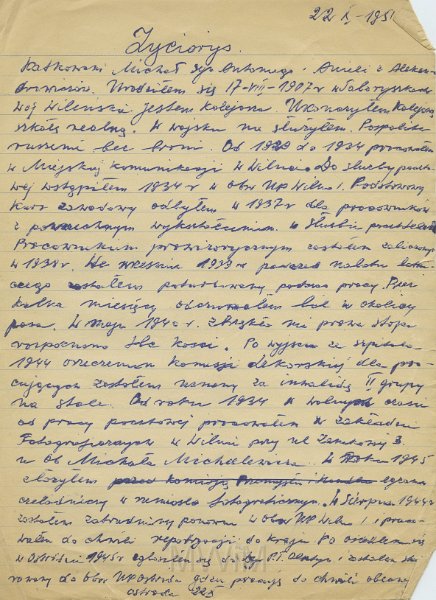 22 X - 1951
Życiorys.
Ratkowski Michał syn Antoniego i Anieli z Aleksan-
drowiczów. Urodziłem się 17-VIII-1907 r w
Woj Wileński Jestem Kolejarza. Ukończyłem
szkołę realną. W wojsku nie służyłem. Pospolite
ruszenie bez broni. Od 19 do 1934 pracowałem
w Miejskiej komunikacji w Wilnie. Do służby poczto-
wej wstąpiłem 1934 r w Obw UP Wilno 1. Podstawowy
kurs zawodowy odbyłem w 1937 r dla pracowników
z powszechnym wykształceniem. w służbie
Pracownikiem prowizorycznym zostałem zaliczony
w 1938 r. We wrześniu 1939 r podczas nalotu lotni-
czego zostałem podczas pracy. Przez
kilka miesięcy odczuwałem ból w okolicy
pasa. W maju 1942 r. na prawa stopa
rozpoznano tbc kości. Po wyjściu ze szpitala
1944 orzeczeniem Komisji Lekarskiej dla pra-
cujących zostałem uznany za inwalidę II grupy
na stałe. Od roku 1934 w wolnych czasie
od pracy pocztowej pracowałem w zakładzie
Fotograficznym w Wilnie przy ul Zamkowej 3
u Ob Michała Michalewicza. W Roku 1945
złożyłem przed komisją egzamin
czeladniczy w rzemiośle fotograficznym. W Sierpniu 1944 r
zostałem zatrudniony ponownie w Obw UP Wilno 1 i praco-
wałem do chwili repatriacji do kraju. Po osiedleniu się
w Ostródzie 1945 r zgłosiłem się do Dyr P.T. Olsztyn i zostałem skie-
rowany do Obw UP Ostróda gdzie pracuję do chwili obecnej
Ostróda